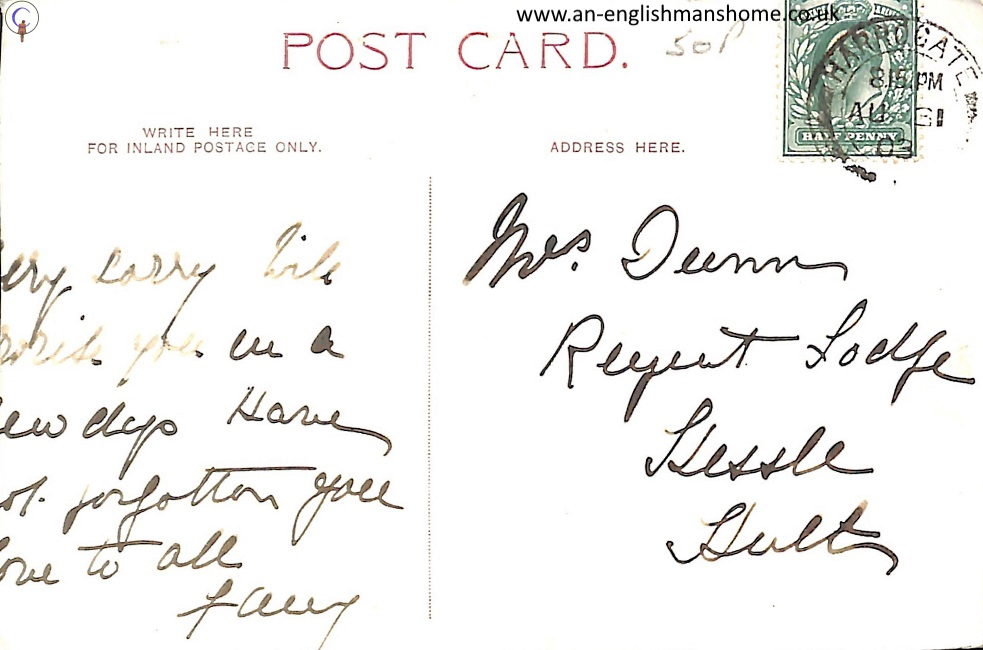 www.an-englishmanshome.co.uk
POST CARD.
50P
HARROGATE
8.15 PM
AU 31
03
HALF PENNY
WRITE HERE
FOR INLAND POSTAGE ONLY.
ADDRESS HERE.
ery sorry Will
you in a
ew days Have
ot forgotten you
love to all
Mrs. Dunn
Regent Lodge
Hessle
Hull